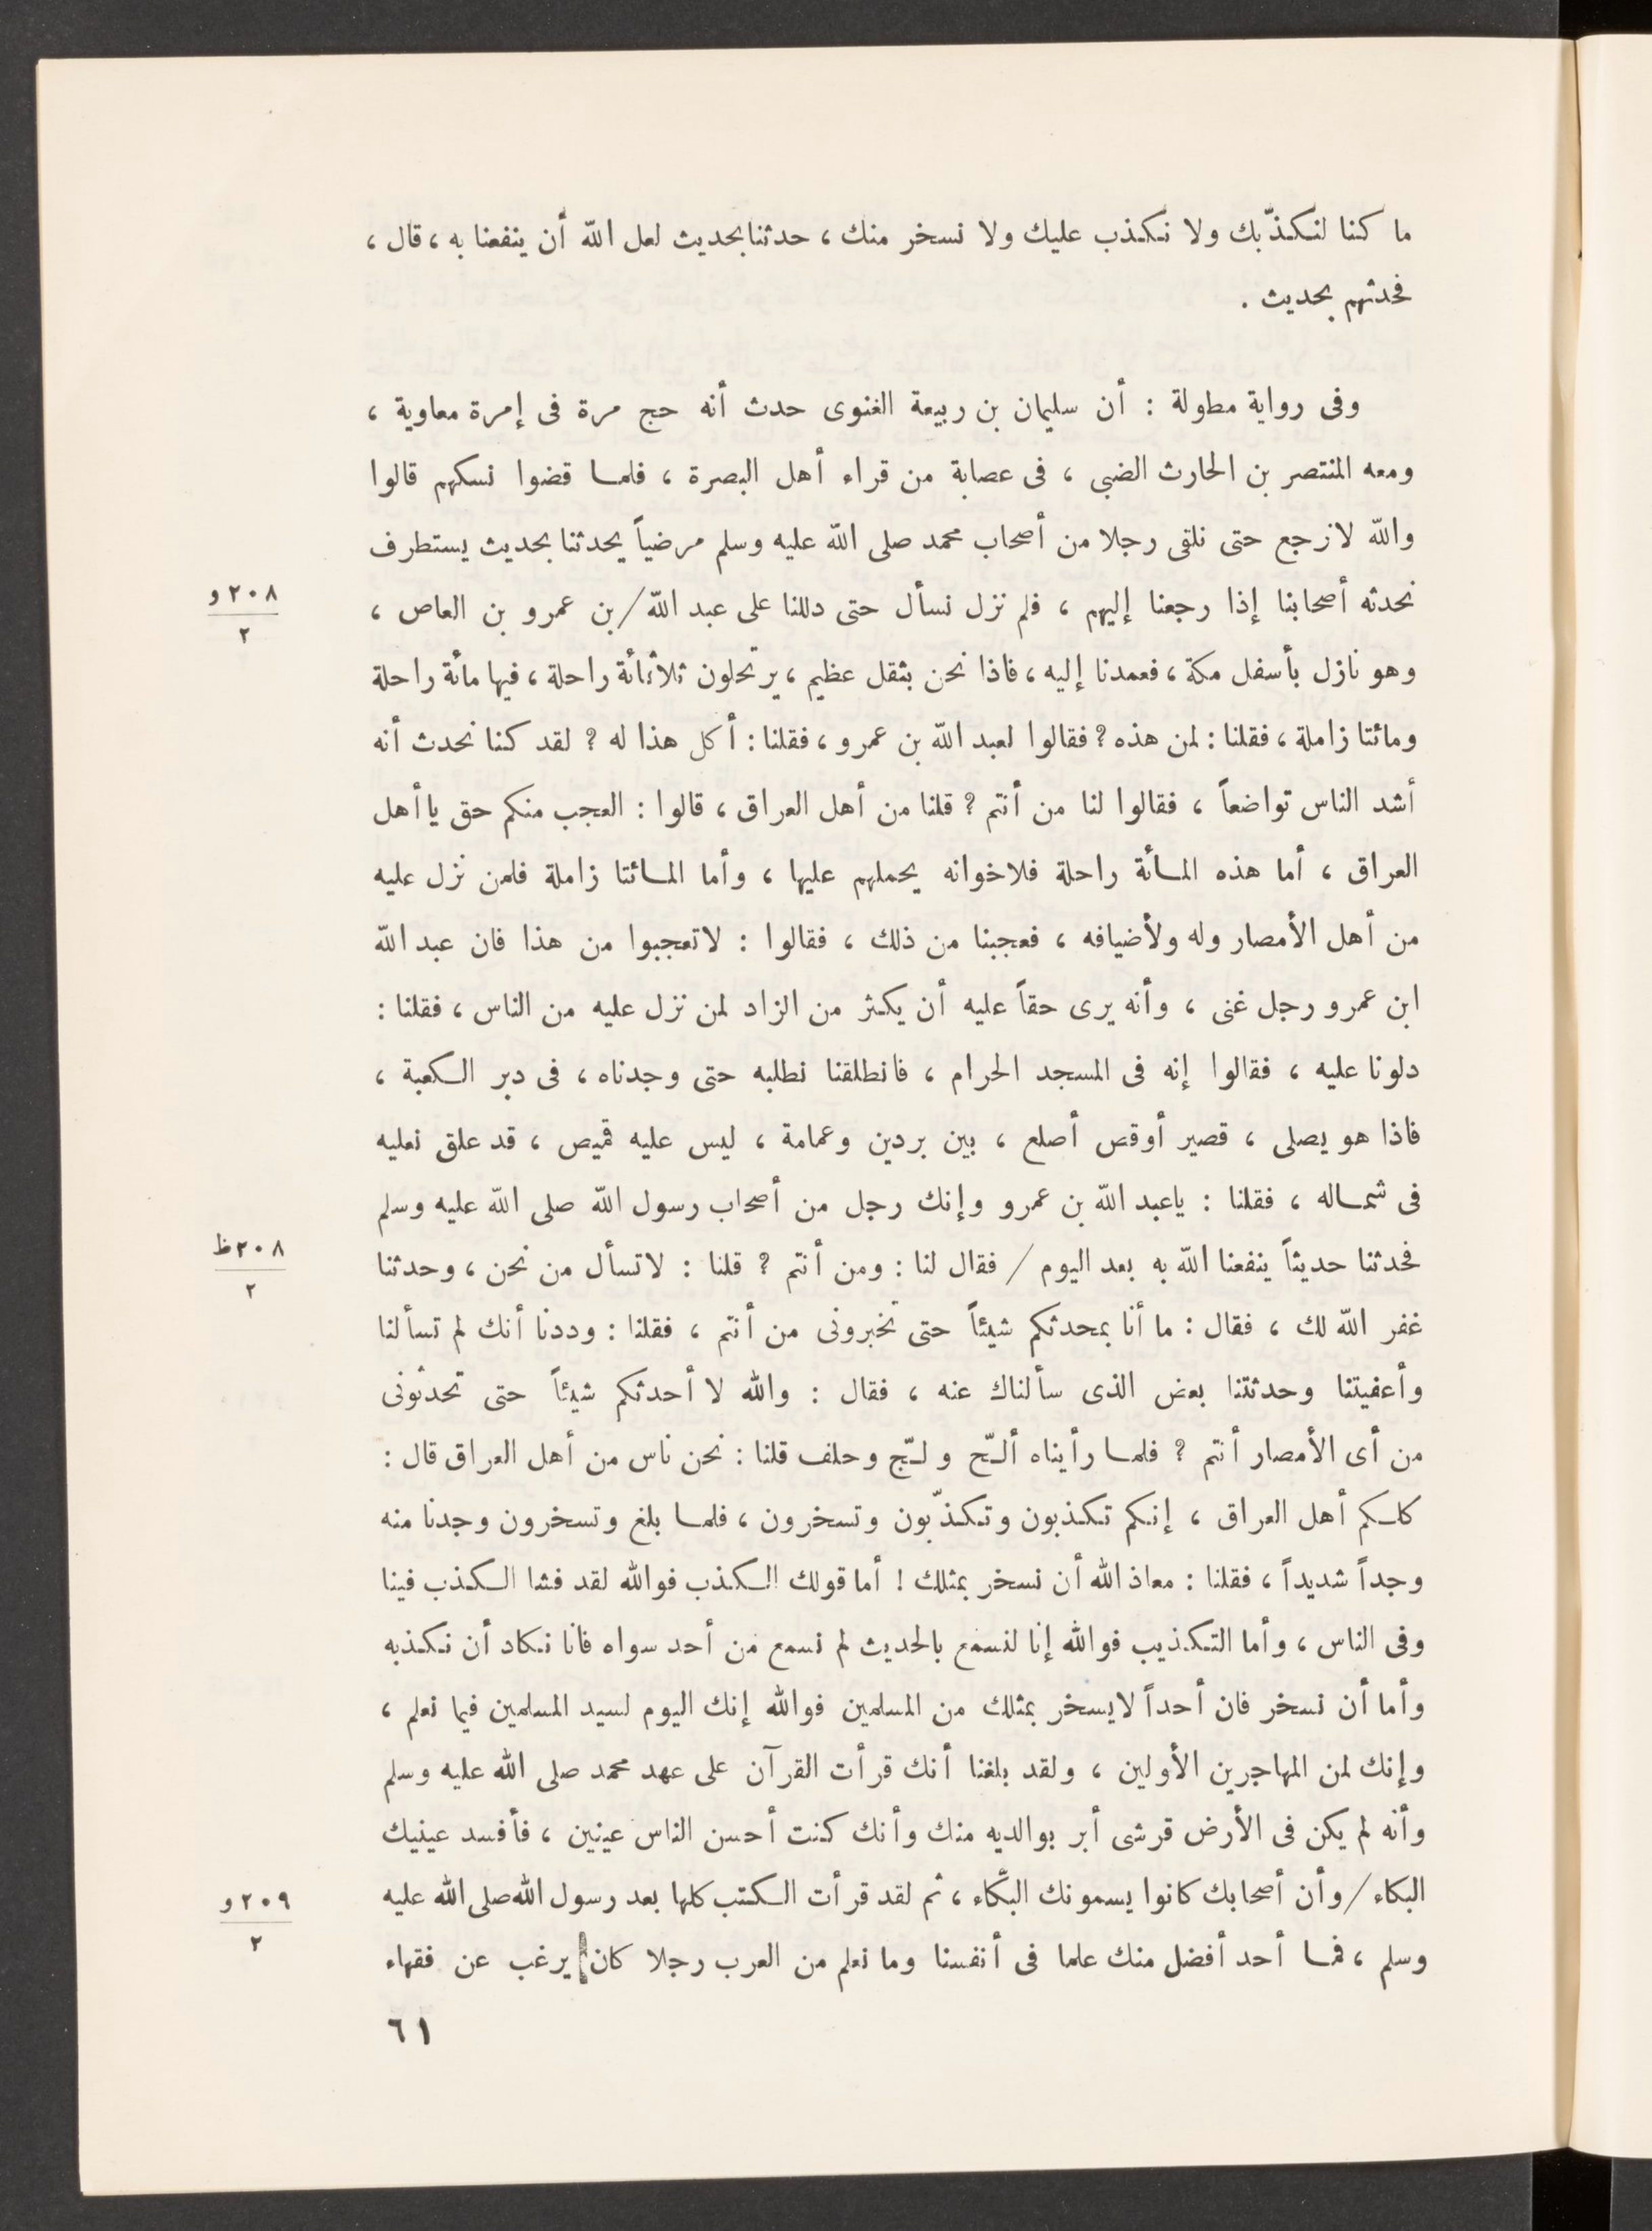 ما كنا لنكذّبك ولا نكذب عليك ولا نسخر منك ، حدثنا بحديث لعل الله أن ينفعنا به ، قال ،
فحدثهم بحديث .
وفى رواية مطولة : أن سليمان بن ربيعة الغنوى حدث أنه حج مرة فى إمرة معاوية ،
ومعه المنتصر بن الحارث الضبى ، فى عصابة من قراء أهل البصرة ، فلما قضوا نسكهم قالوا
والله لا نرجع حتى نلقى رجلا من أصحاب محمد صلى الله عليه وسلم مرضياً يحدثنا بحديث يستطرف
نحدثه أصحابنا إذا رجعنا إليهم ، فلم نزل نسأل حتى دللنا على عبد الله / بن عمرو بن العاص ،
٢٠٨ و
٢
وهو نازل بأسفل مكة ، فعمدنا إليه ، فاذا نحن بثقل عظيم ، يرتحلون ثلاثمائة راحلة ، فيها مائة راحلة
ومائتا زاملة ، فقلنا : لمن هذه ؟ فقالوا لعبد الله بن عمرو ، فقلنا : أكل هذا له ؟ لقد كنا نحدث أنه
أشد الناس تواضعاً ، فقالوا لنا من أنتم ؟ قلنا من أهل العراق ، قالوا : العجب منكم حق يا أهل
العراق ، أما هذه المائة راحلة فلاخوانه يحملهم عليها ، وأما المائتا زاملة فلمن نزل عليه
من أهل الأمصار وله ولأضيافه ، فعجبنا من ذلك ، فقالوا : لا تعجبوا من هذا فان عبد الله
ابن عمرو رجل غنى ، وأنه يرى حقاً عليه أن يكثر من الزاد لمن نزل عليه من الناس ، فقلنا :
دلونا عليه ، فقالوا إنه فى المسجد الحرام ، فانطلقنا نطلبه حتى وجدناه ، فى دبر الكعبة ،
فاذا هو يصلى ، قصير أوقص أصلع ، بين بردين وعمامة ، ليس عليه قميص ، قد علق نعليه
فى شماله ، فقلنا : يا عبد الله بن عمرو وإنك رجل من أصحاب رسول الله صلى الله عليه وسلم
فحدثنا حديثاً ينفعنا الله به بعد اليوم / فقال لنا : ومن أنتم ؟ قلنا : لا تسأل من نحن ، وحدثنا
٢٠٨ ظ
٢
غفر الله لك ، فقال : ما أنا بمحدثكم شيئاً حتى تخبرونى من أنتم ، فقلنا : وددنا أنك لم تسألنا
وأعفيتنا وحدثتنا بعض الذى سألناك عنه ، فقال : والله لا أحدثكم شيئاً حتى تحدثونى
من أى الأمصار أنتم ؟ فلما رأيناه ألحّ ولجّ وحلف قلنا : نحن ناس من أهل العراق قال :
كلكم أهل العراق ، إنكم تكذبون وتكذّبون وتسخرون ، فلما بلغ وتسخرون وجدنا منه
وجداً شديداً ، فقلنا : معاذ الله أن نسخر بمثلك ! أما قولك الكذب فوالله لقد فشا الكذب فينا
وفى الناس ، وأما التكذيب فوالله إنا لنسمع بالحديث لم نسمع من أحد سواه فانا نكاد أن نكذبه
وأما أن نسخر فان أحداً لا يسخر بمثلك من المسلمين فوالله إنك اليوم لسيد المسلمين فيما نعلم ،
وإنك لمن المهاجرين الأولين ، ولقد بلغنا أنك قرأت القرآن على عهد محمد صلى الله عليه وسلم
وأنه لم يكن فى الأرض قرشى أبر بوالديه منك وأنك كنت أحسن الناس عينين ، فأفسد عينيك
البكاء / وأن أصحابك كانوا يسمونك البكّاء ، ثم لقد قرأت الكتب كلها بعد رسول الله صلى الله عليه
٢٠٩ و
٢
وسلم ، فما أحد أفضل منك علما فى أنفسنا وما نعلم من العرب رجلا كان يرغب عن فقهاء
٦١